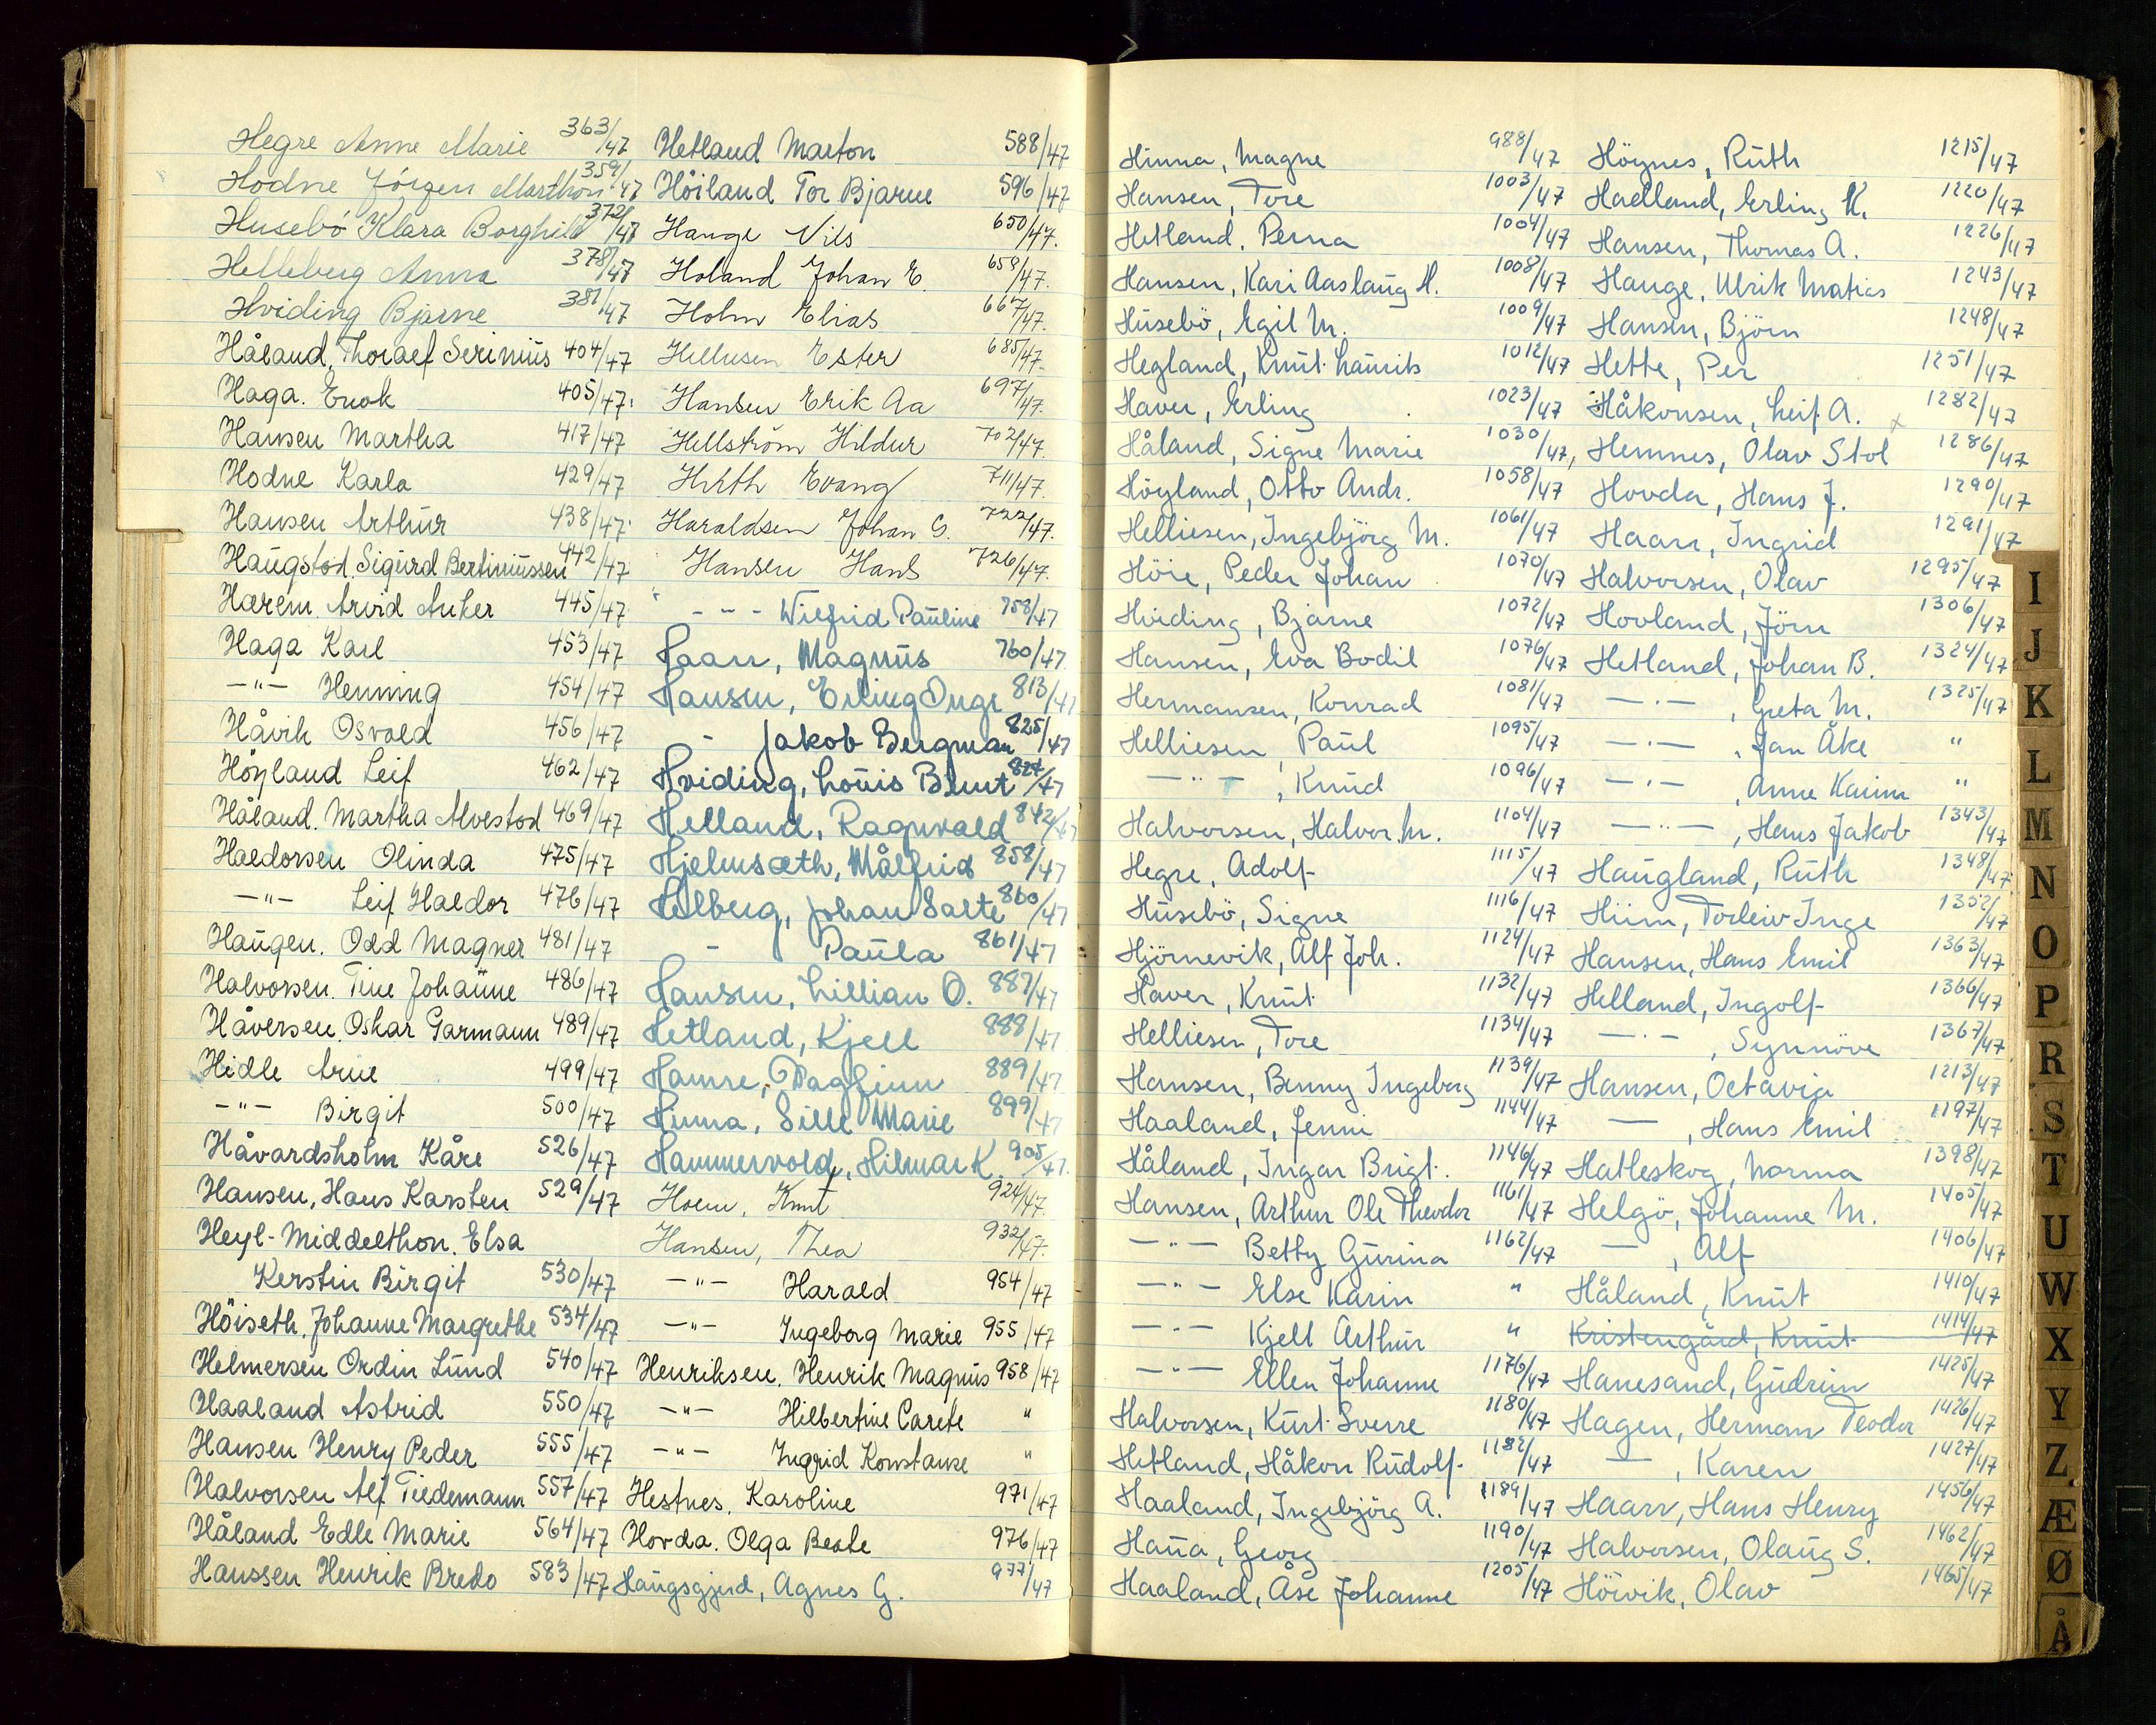 Hegre Anne Marie 363/47
Hodne Jörgen Marthon 359/47
Husebö Klara Borghild 372/47
Helleberg Anna 378/47
Hviding Bjarne 381/47
Håland, Thoralf Serinius 404/47
Haga. Enok 405/47
Hansen Martha 417/47
Hodne Karla 429/47
Hansen Arthur 438/47
Haugstad. Sigurd Bertiniussen 442/47
Hærem. Arvid Anker 445/47
Haga Karl 453/47
—"— Henning 454/47
Håvik Osvald 456/47
Höyland Leif 462/47
Håland. Martha Alvestad 469/47
Haldorsen Olinda 475/47
—"— Leif Haldor 476/47
Haugen. Odd Magner 481/47
Halvorsen. Tine Johanne 486/47
Håversen. Oskar Garmann 489/47
Hidle Arne 499/47
—"— Birgit 500/47
Håvardsholm Kåre 526/47
Hansen, Hans Karsten 529/47
Heyl-Middelthon. Elsa
Kerstin Birgit 530/47
Höiseth. Johanne Margrethe 534/47
Helmersen Ordin Lund 540/47
Haaland Astrid 550/47
Hansen Henry Peder 555/47
Halvorsen Alf Tiedemann 557/47
Håland Edle Marie 564/47
Hanssen Henrik Bredo 583/47
Hetland Marton 588/47
Höiland Tor Bjarne 596/47
Hauge Nils 650/47.
Holand Johan E. 659/47.
Holm Elias 667/47.
Helliesen Ester 685/47.
Hansen Erik Aa 697/47.
Hellström Hildur 702/47.
Hirth Evang 711/47.
Haraldsen Johan G. 722/47.
Hansen Hans 726/47.
- - - Wilfrid Pauline 758/47
Haarr, Magnus 760/47
Hansen, Erling Inge 813/47
- Jakob Bergman 825/47
Hviding, Louis Blunt 827/47
Helland, Ragnvald 842/47
Hjelmsæth, Målfrid 858/47
Helberg, Johan Salte 860/47
- Paula 861/47
Hansen, Lillian O. 887/47
Hetland, Kjell 888/47
Hamre, Dagfinn 889/47
Hinna, Sille Marie 899/47
Hammervold, Hilmar K. 905/47.
Hoem, Knut 924/47.
Hansen, Thea 932/47.
—"— Harald 954/47
—"— Ingeborg Marie 955/47
Henriksen. Henrik Magnus 958/47
—"— Hilbertine Carete "
—"— Ingrid Konstanse "
Hestnes. Karoline 971/47
Hovda. Olga Beate 976/47
Haugsgjerd, Agnes G. 977/47
Hinna, Magne 988/47
Hansen, Tore 1003/47
Hetland, Perna 1004/47
Hansen, Kari Aaslaug H. 1008/47
Husebö, Egil M. 1009/47
Hegland, Knut Laurits 1012/47
Haver, Erling 1023/47
Håland, Signe Marie 1030/47,
Höyland, Otto Andr. 1058/47
Helliesen, Ingebjörg M. 1061/47
Höie, Peder Johan 1070/47
Hviding, Bjarne 1072/47
Hansen, Eva Bodil 1076/47
Hermansen, Konrad 1081/47
Helliesen, Paul 1095/47
—"—, Knud 1096/47
Halvorsen, Halvor M. 1104/47
Hegre, Adolf 1115/47
Husebö, Signe 1116/47
Hjörnevik, Alf Joh. 1124/47
Haver, Knut 1132/47
Helliesen, Tore 1134/47
Hansen, Benny Ingeborg 1139/47
Haaland, Jenni 1144/47
Håland, Ingar Brigt. 1146/47
Hansen, Arthur Ole Theodor 1161/47
—"— Betty Gurina 1162/47
—"— Else Karin "
—"— Kjell Arthur "
—"— Ellen Johanne 1176/47
Halvorsen, Kurt Sverre 1180/47
Hetland, Håkon Rudolf 1182/47
Haaland, Ingebjörg A. 1189/47
Hana, Georg 1190/47
Haaland, Åse Johanne 1205/47
Höynes, Ruth 1215/47
Hadland, Erling K. 1220/47
Hansen, Thomas A. 1226/47
Hauge, Ulrik Matias 1243/47
Hansen, Björn 1248/47
Hette, Per 1251/47
Håkonsen, Leif A. 1282/47
Hemnes, Olav Stol x 1286/47
Hovda, Hans J. 1290/47
Haarr, Ingrid 1291/47
Halvorsen, Olav 1295/47
Hovland, Jörn 1306/47
Hetland, Johan B. 1324/47
—"—, Greta M. 1325/47
—"—, Jan Åke "
—"—, Anne Karine "
—"—, Hans Jakob 1343/47
Haugland, Ruth 1348/47
Hiim, Torleiv Inge 1352/47
Hansen, Hans Emil 1363/47
Helland, Ingolf 1366/47
—"—, Synnöve 1367/47
Hansen, Octavia 1213/47
—, Hans Emil 1197/47
Hatleskog, Norma 1398/47
Helgö, Johanne M. 1405/47
—, Alf 1406/47
Håland, Knut 1410/47
Kristengård, Knut 1414/47
Hanesand, Gudrun 1425/47
Hagen, Herman Teodor 1426/47
—, Karen 1427/47
Haarr, Hans Henry 1456/47
Halvorsen, Olaug S. 1462/47
Höivik, Olav 1465/47
I
J
K
L
M
N
O
P
R
S
T
U
W
X
Y
Z
Æ
Ø
Å